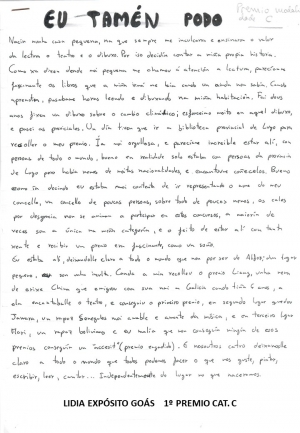 EU TAMÉN PODO
Premio modalidade C
Nacín nunha casa pequena, na que sempre me inculcaron e ensinaron o valor
da lectura o teatro e o dibuxo. Por iso decidín contar a miña propia historia.
Como xa dixen dende moi pequena me chamou a atención a lectura, parecíanme
fascinante os libros que a miña nai me lía cando eu aínda non sabía. Cando
aprendín, pasábame horas lendo e dibuxando na miña habitación. Fai dous
anos fixen un dibuxo sobre o cambio climático; esforceime moito en aquel dibuxo,
e pasei as parciais. Un día tiven que ir a biblioteca provincial de Lugo para
recoller o meu premio. Ía moi orgullosa, e parecíame increíble estar alí, con
persoas de todo o mundo, bueno en realidade solo estaba con persoas da provincia
de Lugo pero había nenos de moitas nacionalidades e encantoume coñecelos. Bueno
como ía dicindo eu estaba moi contenta de ir representando o nome do meu
concello, un concello de poucas persoas, sobre todo de poucos nenos, os cales
por desgracia non se animan a participar en estes concursos, a maioría de
veces son a única na miña categoría, e o feito de estar alí con tanta
xente e recibir un premio era fascinante, como un soño.
Eu estaba alí, deixándolle claro a todo o mundo que non por ser de Alfoz, un lugar
pequeno, son unha inútil. Cando a min recolleu o premio Liang, unha nena
de orixe China que emigrou coa súa nai a Galicia cando tiña 6 anos, a
ela encantáballe o teatro, e conseguiu o primeiro premio, en segundo lugar quedou
Jamara, un rapaz Senegalés moi amable e amante da música, e en terceiro lugar
Flori, un rapaz boliviano e eu malia que non conseguín ningún de esos
premios conseguín un "accesit" (premio engadido). E nosoutros catro deixámoslle
claro a todo o mundo que todos podemos facer o que nos guste, pintar,
escribir, leer, cantar... Independentemente do lugar no que naceramos.
LIDIA EXPÓSITO GOÁS 1º PREMIO CAT. C